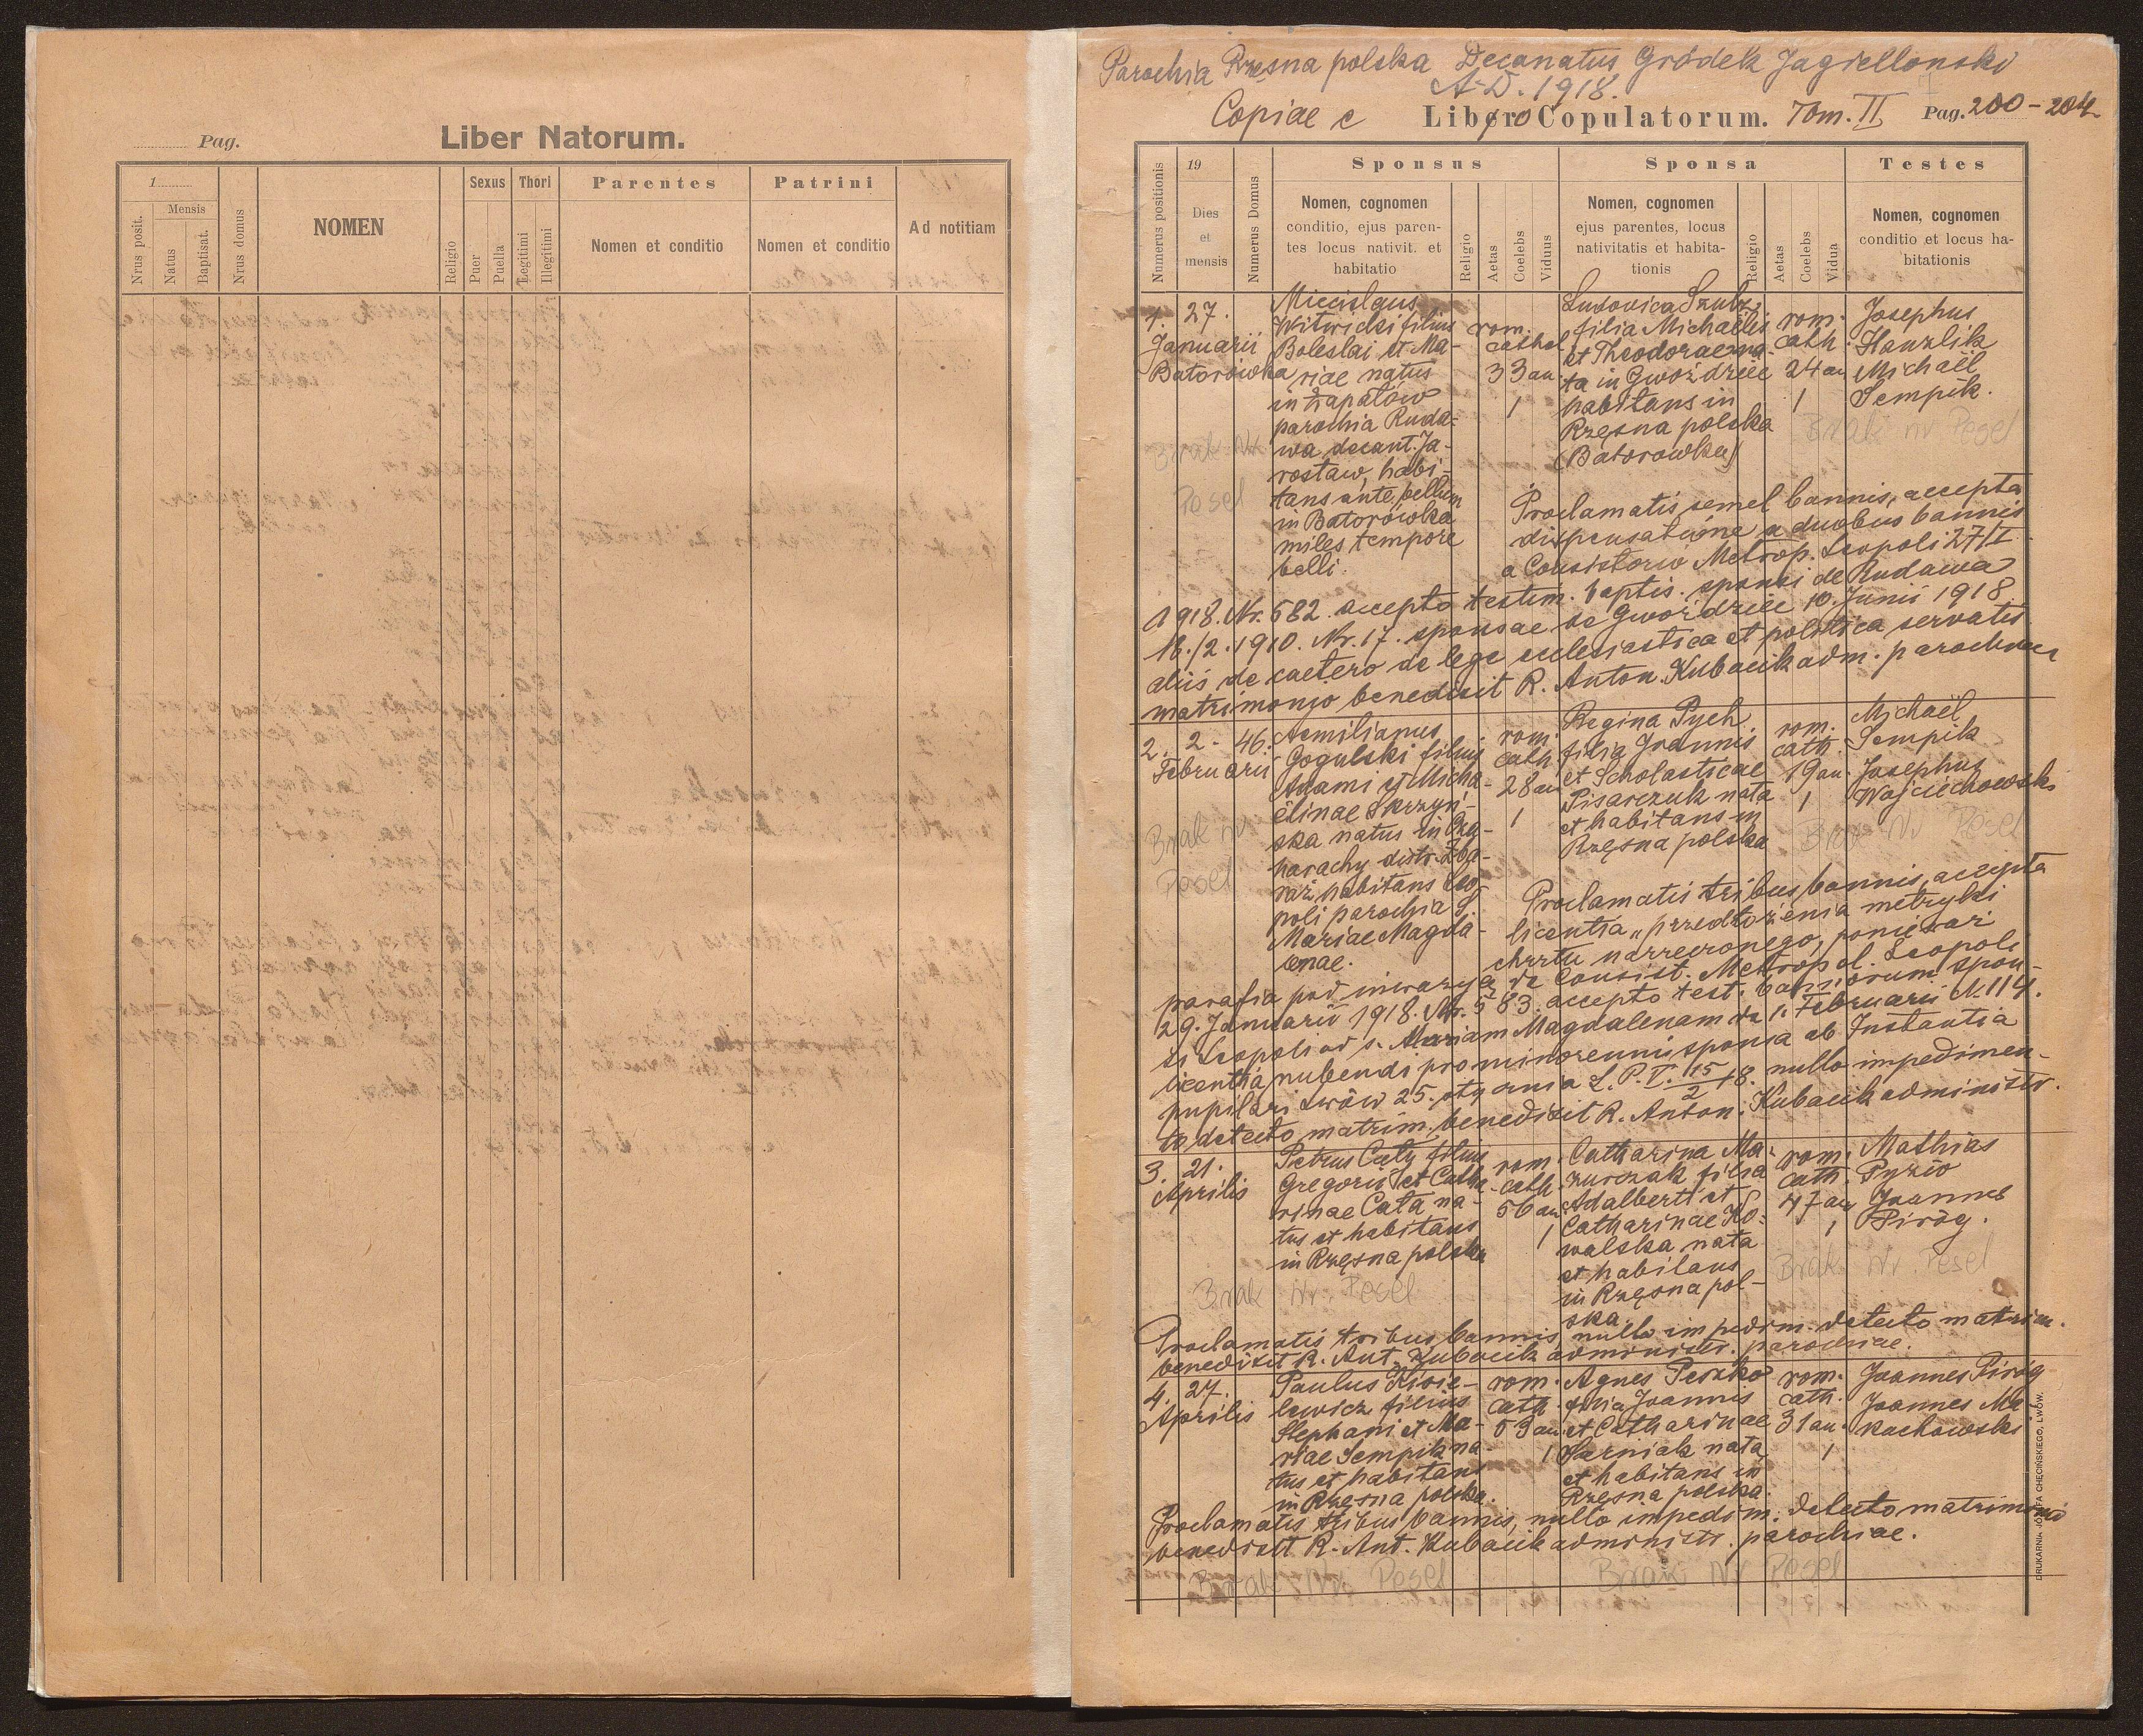 Pag.
Liber Natorum.
1
Nrus posit.
Mensis
Natus
Baptisat.
Nrus domus
NOMEN
Religio
Sexus
Puer
Puella
Thori
Legitimi
Illegitimi
Parentes
Nomen et conditio
Patrini
Nomen et conditio
Ad notitiam
Parochia Rzęsna polska Decanatus Gródek Jagielloński
A.D. 1918.
Copiae e Libro Copulatorum. Tom. II Pag. 200-204
Numerus positionis
19
Dies
et
mensis
Numerus Domus
Sponsus
Nomen, cognomen
conditio, ejus paren-
tes locus nativit. et
habitatio
Religio
Aetas
Coelebs
Viduus
Sponsa
Nomen, cognomen
ejus parentes, locus
nativitatis et habita-
tionis
Religio
Aetas
Coelebs
Vidua
Testes
Nomen, cognomen
conditio et locus ha-
bitationis
1. 27.
Januarii
Batorówka
Miecislaus
Witwicki filius
Boleslai et Ma-
riae natus
in Zapałów
parochia Ruda-
wa decant. Ja-
rosław, habi-
tans ante bellum
in Batorówka
miles tempore
belli.
rom.
cathol
33 an.
1
Ludovica Szulz,
filia Michaëlis
et Theodorae na-
ta in Gwoździec
habitans in
Rzęsna polska
(Batorowka)
rom.
cath.
24 an
1
Josephus
Hanzlik
Michaël
Sempik.
Brak Nr
Pesel
Brak nr Pesel
Proclamatis semel bannis, accepta
dispensatione a duobus bannis
a Consistorio Metrop. Leopoli 27/I
1918. Nr. 582. accepto testim. baptis. sponsi de Rudawa
18./2. 1910. Nr. 17. sponsae de Gwoździec 10. Junii 1918
aliis de caetero de lege ecclesiastica et politica servatis
matrimonio benedixit R. Anton. Kubacik adm. parochiae
2. 2. 46.
Februarii
Aemilianus
Gogulski filius
Adami et Micha-
elinae Skrzyń-
ska natus in Cza-
harachy distr. Zba-
raż habitans Leo-
poli parochia S.
Mariae Magda-
lenae.
rom.
cath
28 an
1
Regina Pych
filia Joannis
et Scholasticae
Pisarczuk nata
et habitans in
Rzęsna polska
rom.
cath.
19 an.
1
Michaël
Sempik
Josephus
Wojciechowski
Brak nr
Pesel
Brak Nr Pesel
Proclamatis tribus bannis, accepta
licentia „przedłożenia metryki
chrztu narzeczonego, ponieważ
parafia pod inwazyą de Consist. Metropol. Leopoli
29. Januarii 1918. Nr. 583. accepto test. bannorum spon-
si Leopoli ad s. Mariam Magdalenam de 1. Februarii N. 114.
licentia nubendi pro minorenni sponsa ab Instantia
pupilari Lwów 25. stycznia L. P. V. 15/2 18. nullo impedimen-
to detecto matrim. benedixit R. Anton. Kubacik administr.
3. 21.
Aprilis
Petrus Cały filius
Gregorii et Catha-
rinae Cała na-
tus et habitans
in Rzęsna polska
rom.
cath.
56 an
1
Catharina Ma-
zurczak filia
Adalberti et
Catharinae Ko-
walska nata
et habitans
in Rzęsna pol-
ska.
rom.
cath.
47 an
1
Mathias
Pyzio
Joannes
Piróg.
Brak Nr. Pesel
Brak Nr. Pesel
Proclamatis tribus bannis, nullo impedim. detecto matrim.
benedixit R. Ant. Kubacik administr. parochiae.
4. 27.
Aprilis
Paulus Kisie-
lewicz filius
Stephani et Ma-
riae Sempik na-
tus et habitans
in Rzęsna polska.
rom.
cath.
53 an
1
Agnes Peszko
filia Joannis
et Catharinae
Sarniak nata
et habitans in
Rzęsna polska.
rom.
cath.
31 an.
1
Joannes Piróg
Joannes Ma-
kachowski
Proclamatis tribus bannis, nullo impedim. detecto matrimonio
benedixit R. Ant. Kubacik administr. parochiae.
Brak Nr. Pesel
Brak Nr Pesel
DRUKARNIA JÓZEFA CHĘCIŃSKIEGO, LWÓW.